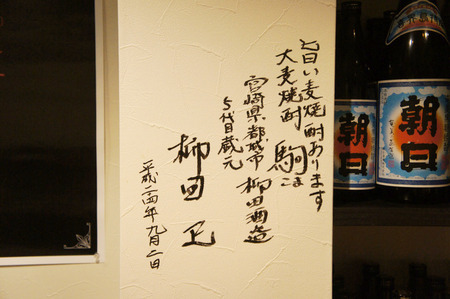 旨い麦焼酎あります
大麦焼酎 駒は
宮崎県都城市 柳田酒造
5代目蔵元
柳田 正
平成二四年九月二日
朝日
朝日